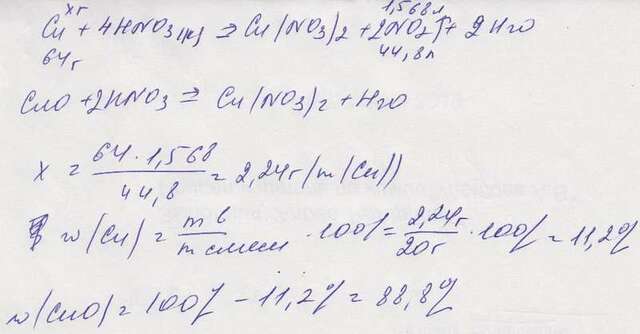 x г 1,568 л
Cu + 4HNO3(к) ⇒ Cu(NO3)2 + 2NO2↑ + 2H2O
64 г 44,8 л
CuO + 2HNO3 = Cu(NO3)2 + H2O
x = 64 · 1,568 / 44,8 = 2,24 г (m(Cu))
w(Cu) = m в / m смеси · 100% = 2,24 г / 20 г · 100% = 11,2%
w(CuO) = 100% - 11,2% = 88,8%